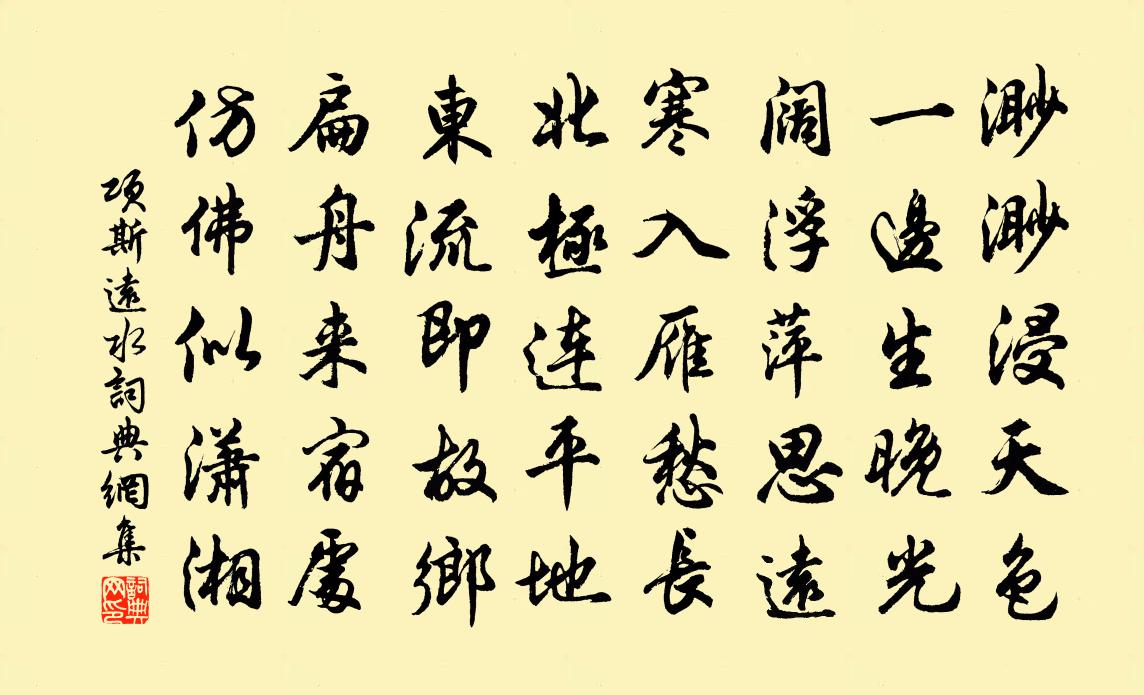 渺渺浸天色
一邊生晚光
阔浮萍思遠
寒入雁愁長
北極連平地
東流即故鄉
扁舟来宿處
仿佛似潇湘
項斯遠水詞典網集
詞典网印